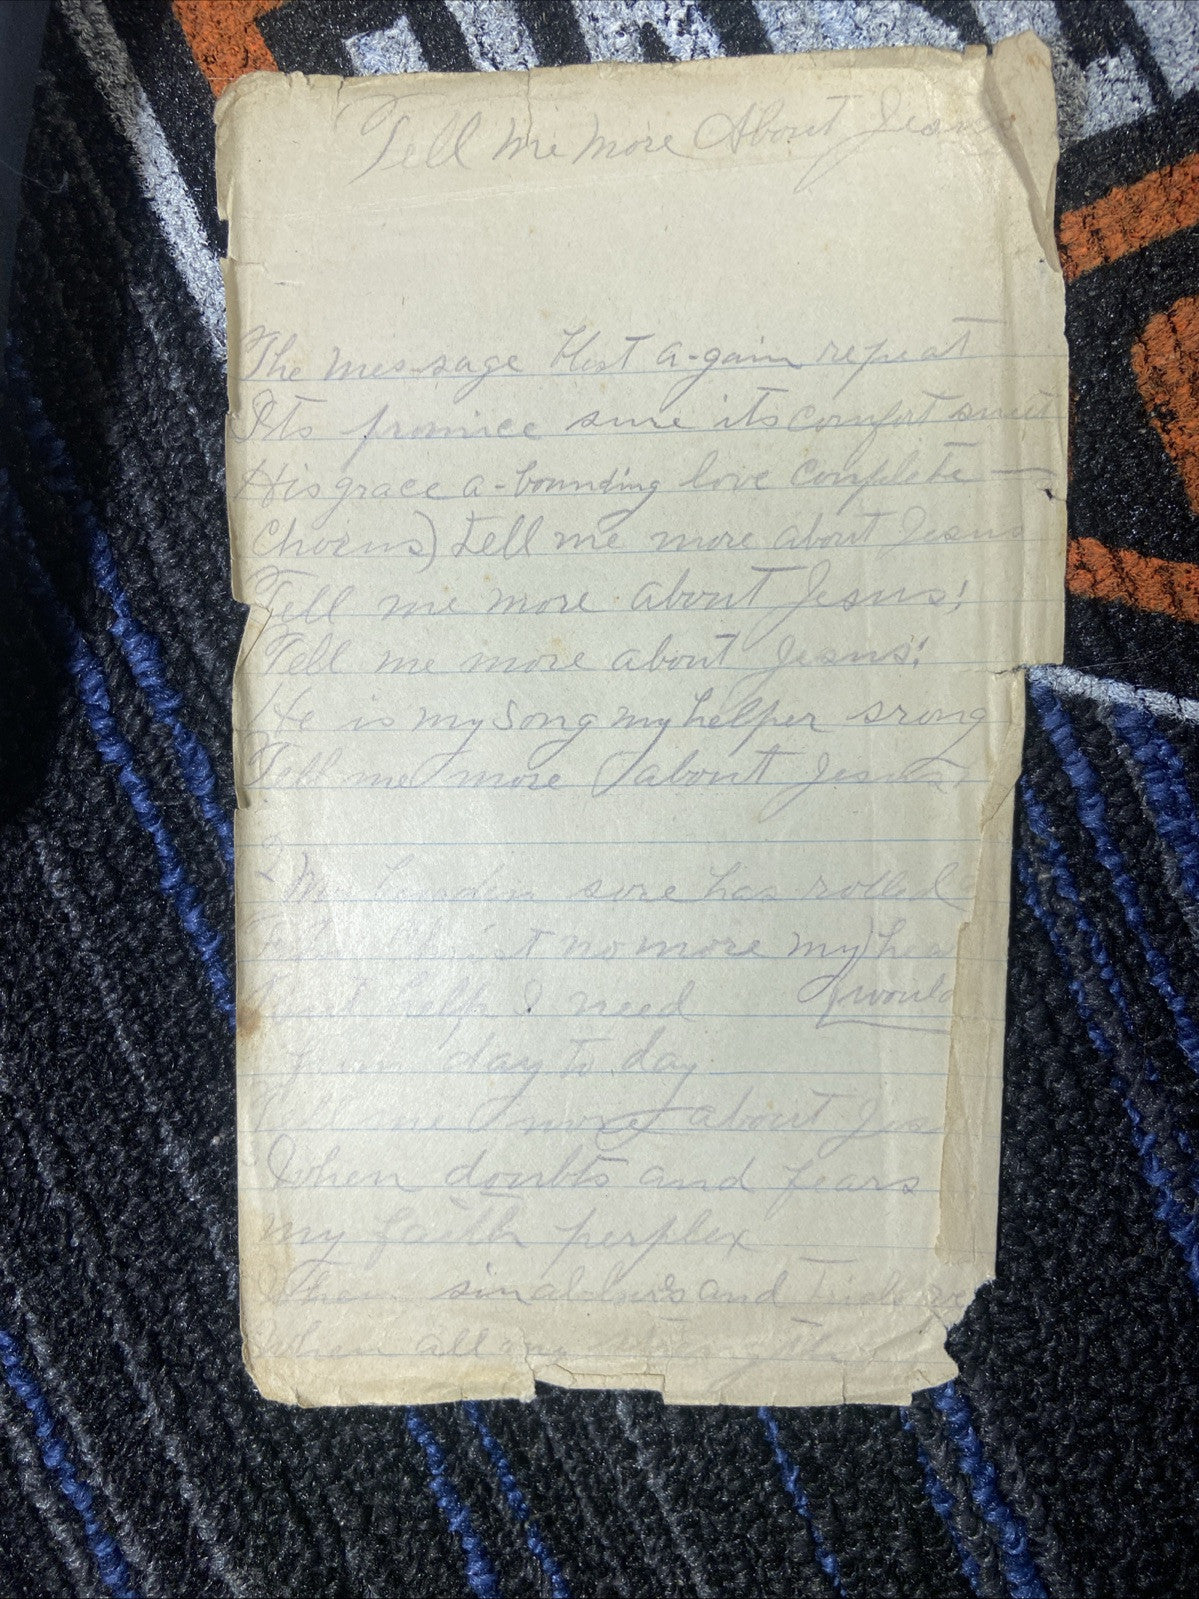 Tell me more About Jesus
The mes-sage blest a-gain repeat
Its promice sure its comfort sweet
His grace a-bounding love complete
Chorus) tell me more about Jesus
Tell me more about Jesus!
Tell me more about Jesus!
He is my song my helper srong
Tell me more about Jesus
2 My burden sore has rolled
From Christ no more my
would
help I need
From day to day
Tell me more about Jes
When doubts and fears
my faith perplex
When sin and
When all my strength